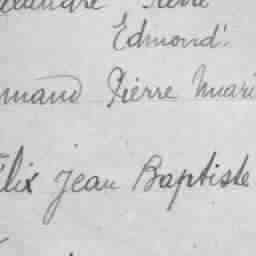 Edmond.
mand Pierre Mari
lix Jean Baptiste